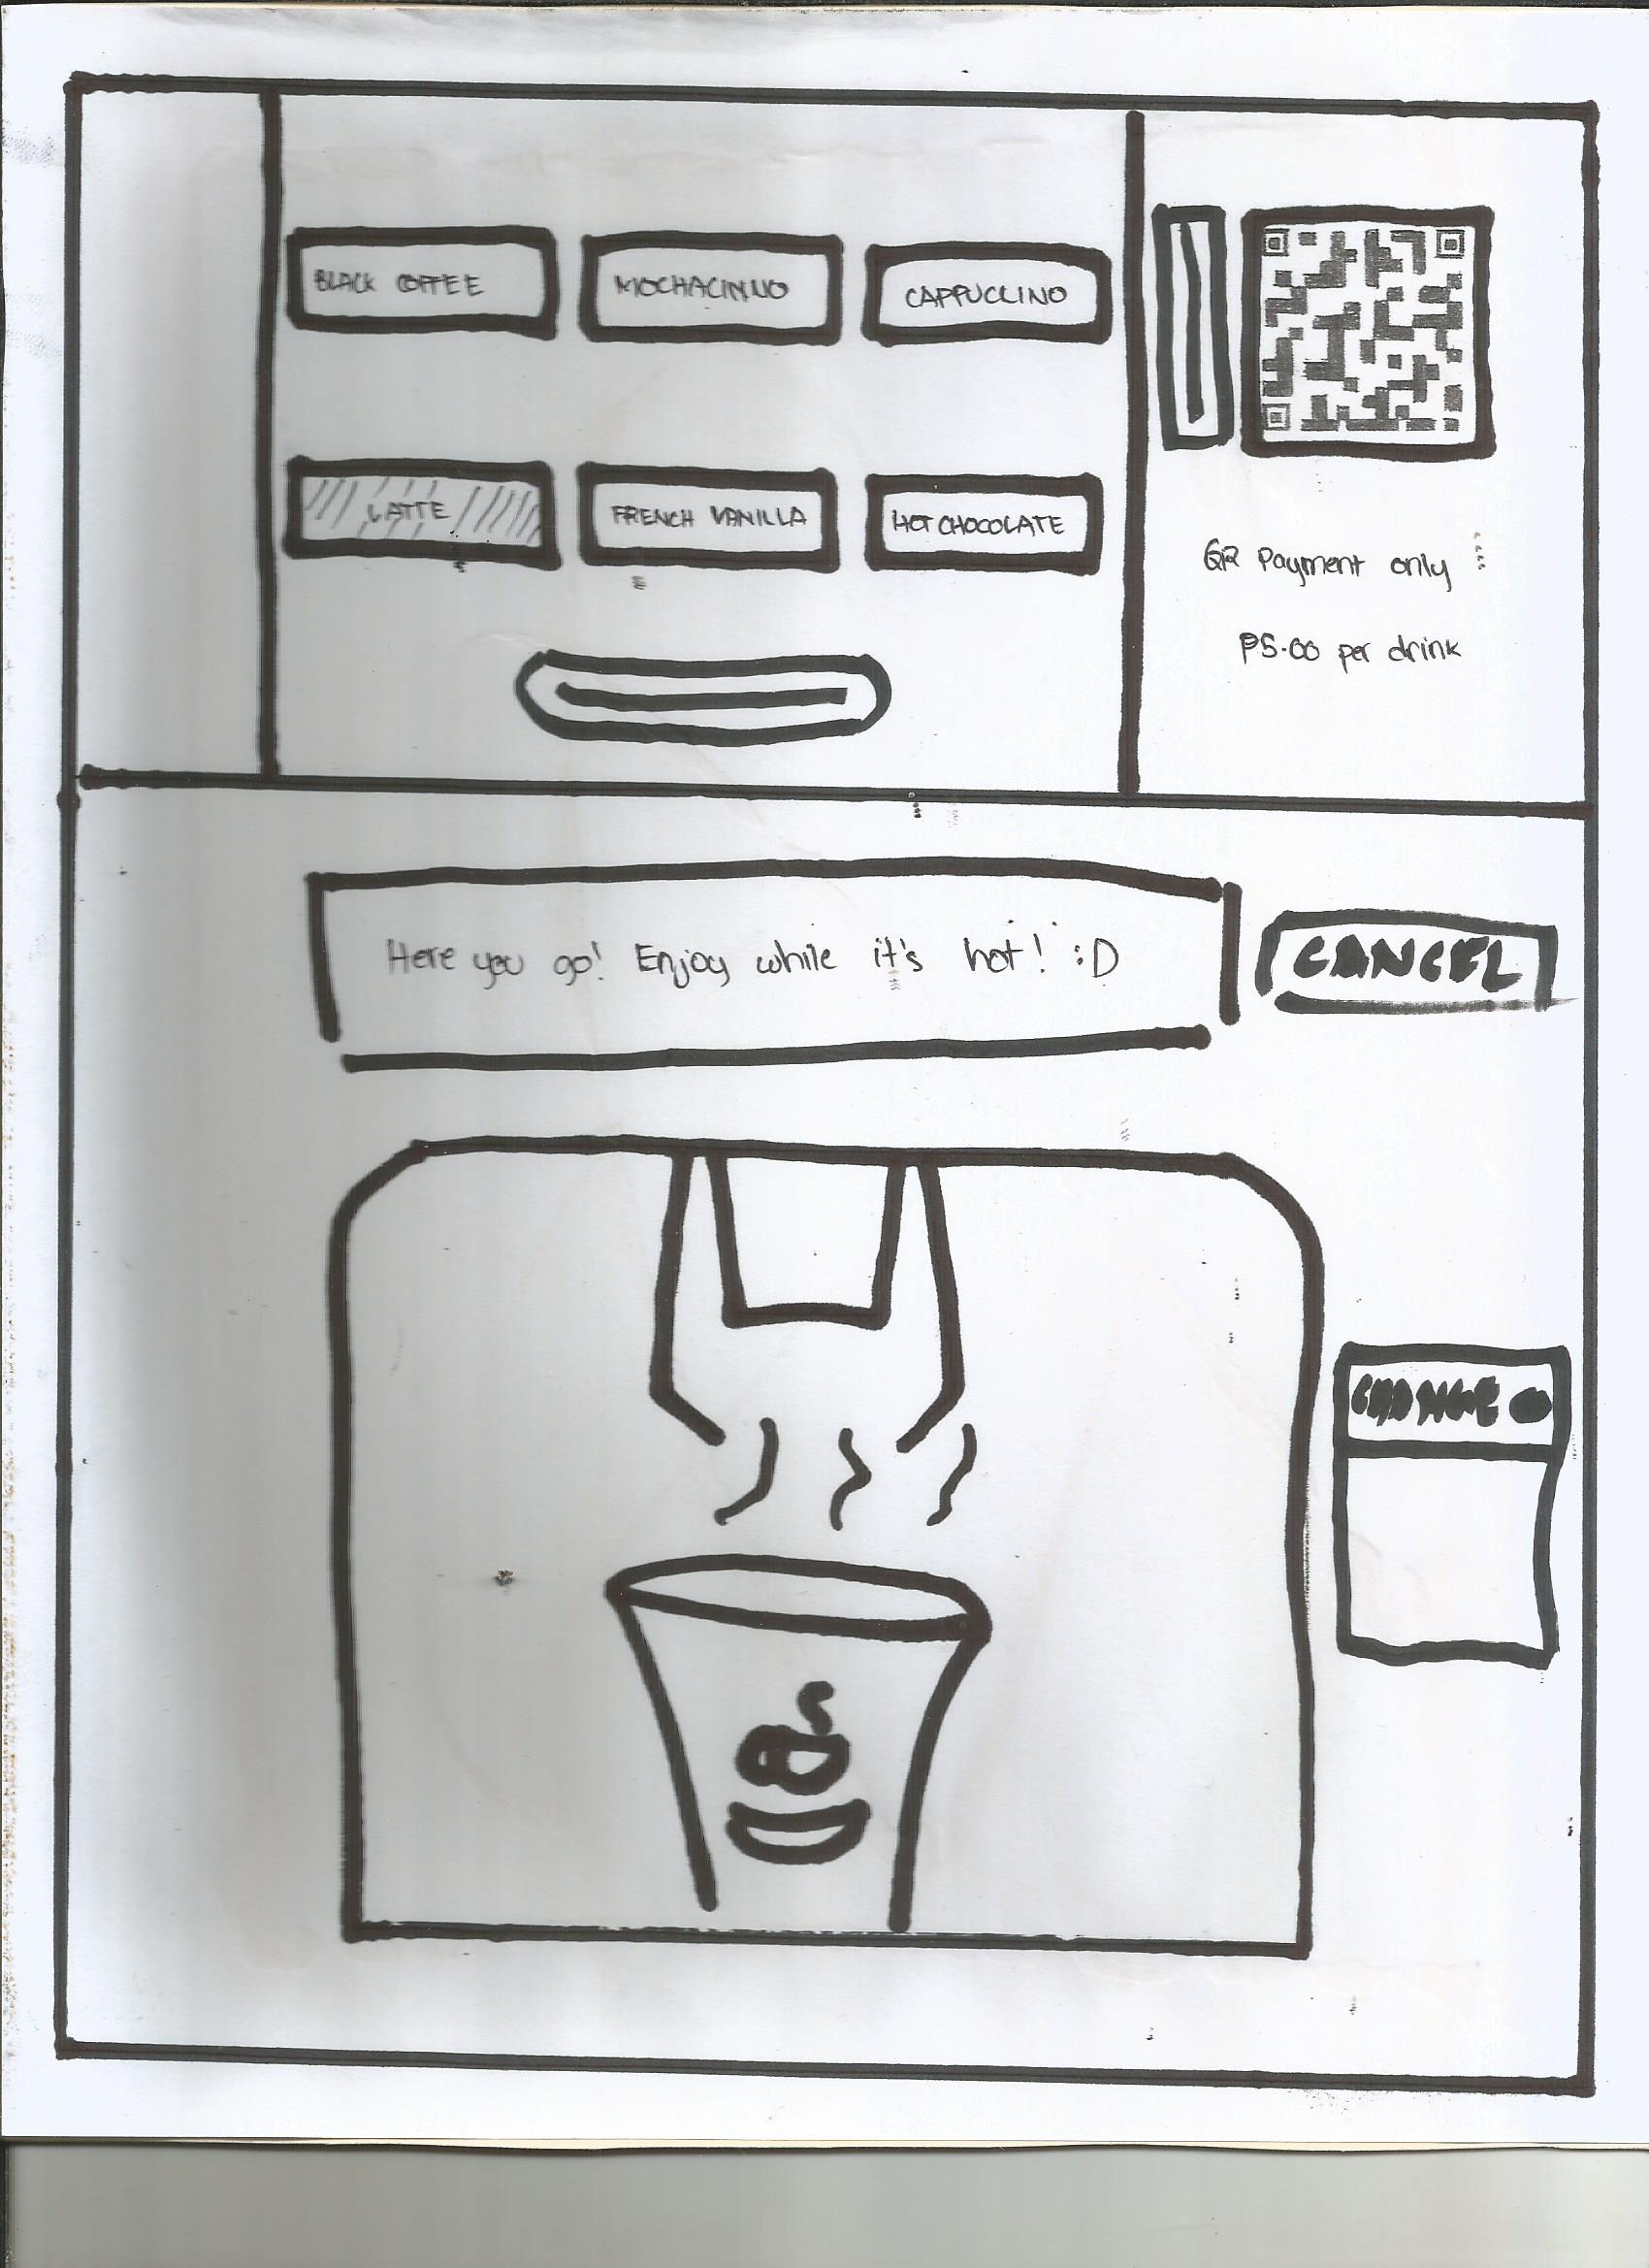 BLACK COFFEE
MOCHACINNO
CAPPUCCINO
LATTE
FRENCH VANILLA
HOT CHOCOLATE
QR Payment only
₱5.00 per drink
Here you go! Enjoy while it's hot! :D
CANCEL
CHANGE